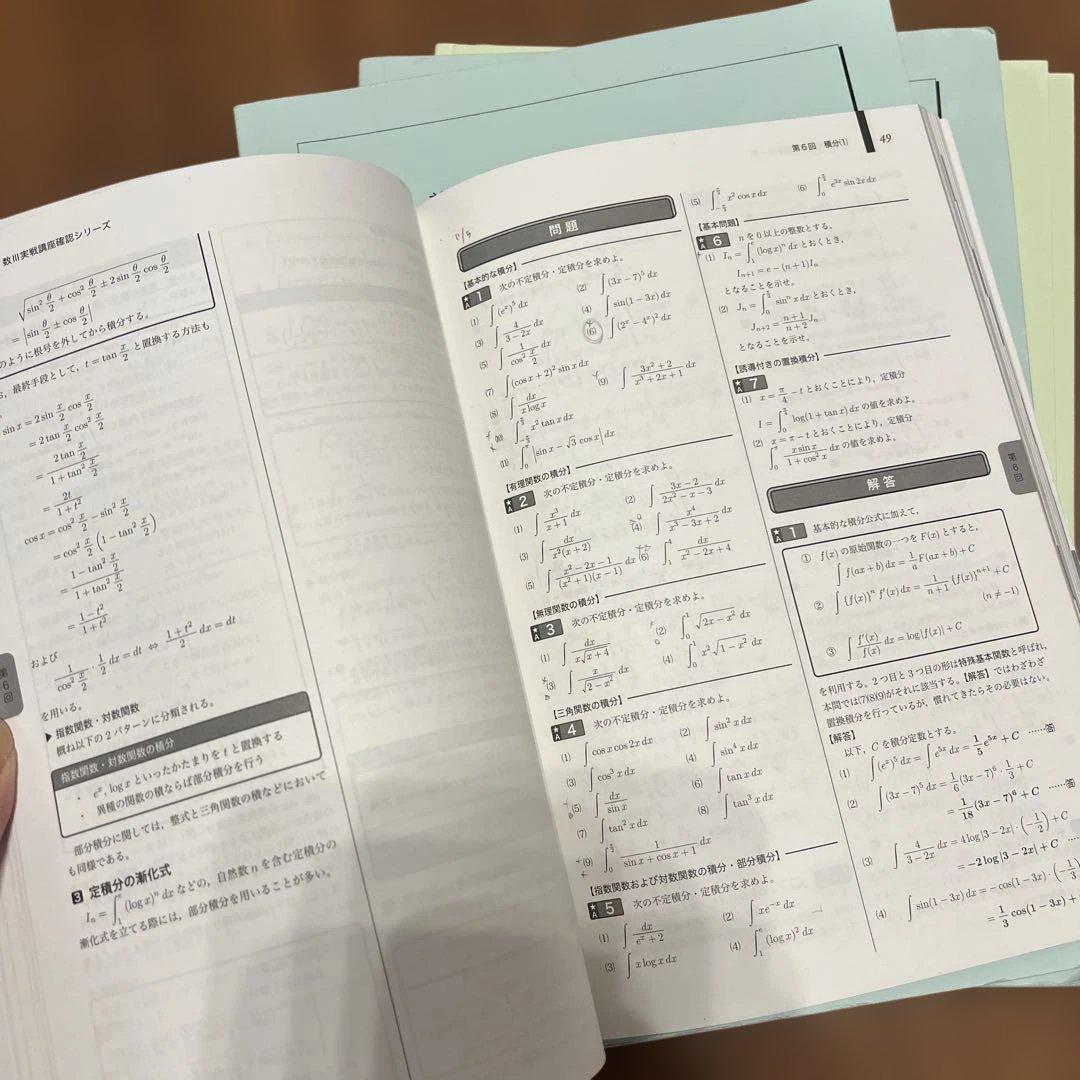 数III実戦講座確認シリーズ
√(sin² θ/2 + cos² θ/2 ± 2 sin θ/2 cos θ/2)
= |sin θ/2 ± cos θ/2|
のように根号を外してから積分する。
最終手段として，t = tan x/2 と置換する方法も
sin x = 2 sin x/2 cos x/2
= 2 tan x/2 cos² x/2
= (2 tan x/2)/(1 + tan² x/2)
= 2t/(1+t²)
cos x = cos² x/2 − sin² x/2
= cos² x/2 (1 − tan² x/2)
= (1 − tan² x/2)/(1 + tan² x/2)
= (1−t²)/(1+t²)
および
1/(cos² x/2) · 1/2 dx = dt ⇔ (1+t²)/2 dx = dt
を用いる。
▶ 指数関数・対数関数
概ね以下の2パターンに分類される。
指数関数・対数関数の積分
・ eˣ, log x といったかたまりを t と置換する
・ 異種の関数の積ならば部分積分を行う
部分積分に関しては，整式と三角関数の積などにおいて
も同様である。
3 定積分の漸化式
Iₙ = ∫₁ᵉ (log x)ⁿ dx などの，自然数 n を含む定積分の
漸化式を立てる際には，部分積分を用いることが多い。
第6回
第6回 積分(1)
49
問題
【基本的な積分】
★A 1 次の不定積分・定積分を求めよ。
(1) ∫(eˣ)⁵ dx
(2) ∫(3x − 7)⁵ dx
(3) ∫ 4/(3−2x) dx
(4) ∫ sin(1 − 3x) dx
(5) ∫ 1/(cos² x/2) dx
(6) ∫(2ˣ − 4ˣ)² dx
(7) ∫(cos x + 2)² sin x dx
(8) ∫ dx/(x log x)
(9) ∫ (3x² + 2)/(x³ + 2x + 1) dx
(10) x² tan x dx
(11) |sin x − √3 cos x| dx
【有理関数の積分】
★A 2 次の不定積分・定積分を求めよ。
(1) ∫ x³/(x+1) dx
(2) ∫ (3x − 2)/(2x² − x − 3) dx
(3) ∫ dx/(x²(x+2))
(4) ∫ x⁴/(x³ − 3x + 2) dx
(5) ∫ (x² − 2x − 1)/((x² + 1)(x − 1)) dx
(6) ∫₁⁴ dx/(x² − 2x + 4)
【無理関数の積分】
★A 3 次の不定積分・定積分を求めよ。
(1) ∫ dx/(x√(x+4))
(2) ∫₀¹ √(2x − x²) dx
(3) ∫ x/√(2 − x²) dx
(4) ∫₀¹ x²√(1 − x²) dx
【三角関数の積分】
★A 4 次の不定積分・定積分を求めよ。
(1) ∫ cos x cos 2x dx
(2) ∫ sin² x dx
(3) ∫ cos³ x dx
(4) ∫ sin⁴ x dx
(5) ∫ dx/sin x
(6) ∫ tan x dx
(7) ∫ tan² x dx
(8) ∫ tan³ x dx
(9) 1/(sin x + cos x + 1) dx
【指数関数および対数関数の積分・部分積分】
★A 5 次の不定積分・定積分を求めよ。
(1) ∫ dx/(eˣ + 2)
(2) ∫ xe⁻ˣ dx
(3) ∫ x log x dx
(4) ∫₁ᵉ (log x)² dx
(5) x² cos x dx
(6) e³ˣ sin 2x dx
【基本問題】
★A 6 n を 0 以上の整数とする。
(1) Iₙ = ∫₁ᵉ (log x)ⁿ dx とおくとき，
Iₙ₊₁ = e − (n+1)Iₙ
となることを示せ。
(2) Jₙ = sinⁿ x dx とおくとき，
Jₙ₊₂ = (n+1)/(n+2) Jₙ
となることを示せ。
【誘導付きの置換積分】
★A 7
(1) x = π/4 − t とおくことにより，定積分
I = log(1 + tan x) dx の値を求めよ。
(2) x = π − t とおくことにより，定積分
(x sin x)/(1 + cos² x) dx の値を求めよ。
第6回
解答
★A 1 基本的な積分公式に加えて，
① f(x) の原始関数の一つを F(x) とすると，
∫ f(ax + b) dx = 1/a F(ax + b) + C
② ∫ {f(x)}ⁿ f′(x) dx = 1/(n+1) {f(x)}ⁿ⁺¹ + C
(n ≠ −1)
③ ∫ f′(x)/f(x) dx = log|f(x)| + C
を利用する。2つ目と3つ目の形は特殊基本関数と呼ばれ，
本問では(7)(8)(9)がそれに該当する。【解答】ではわざわざ
置換積分を行っているが，慣れてきたらその必要はない。
【解答】
以下，C を積分定数とする。
(1) ∫(eˣ)⁵ dx = ∫ e⁵ˣ dx = 1/5 e⁵ˣ + C ……答
(2) ∫(3x − 7)⁵ dx = 1/6 (3x − 7)⁶ · 1/3 + C
= 1/18 (3x − 7)⁶ + C ……答
(3) ∫ 4/(3 − 2x) dx = 4 log|3 − 2x| · (−1/2) + C
= −2 log|3 − 2x| + C
(4) ∫ sin(1 − 3x) dx = − cos(1 − 3x) · (−1/3
= 1/3 cos(1 − 3x) +